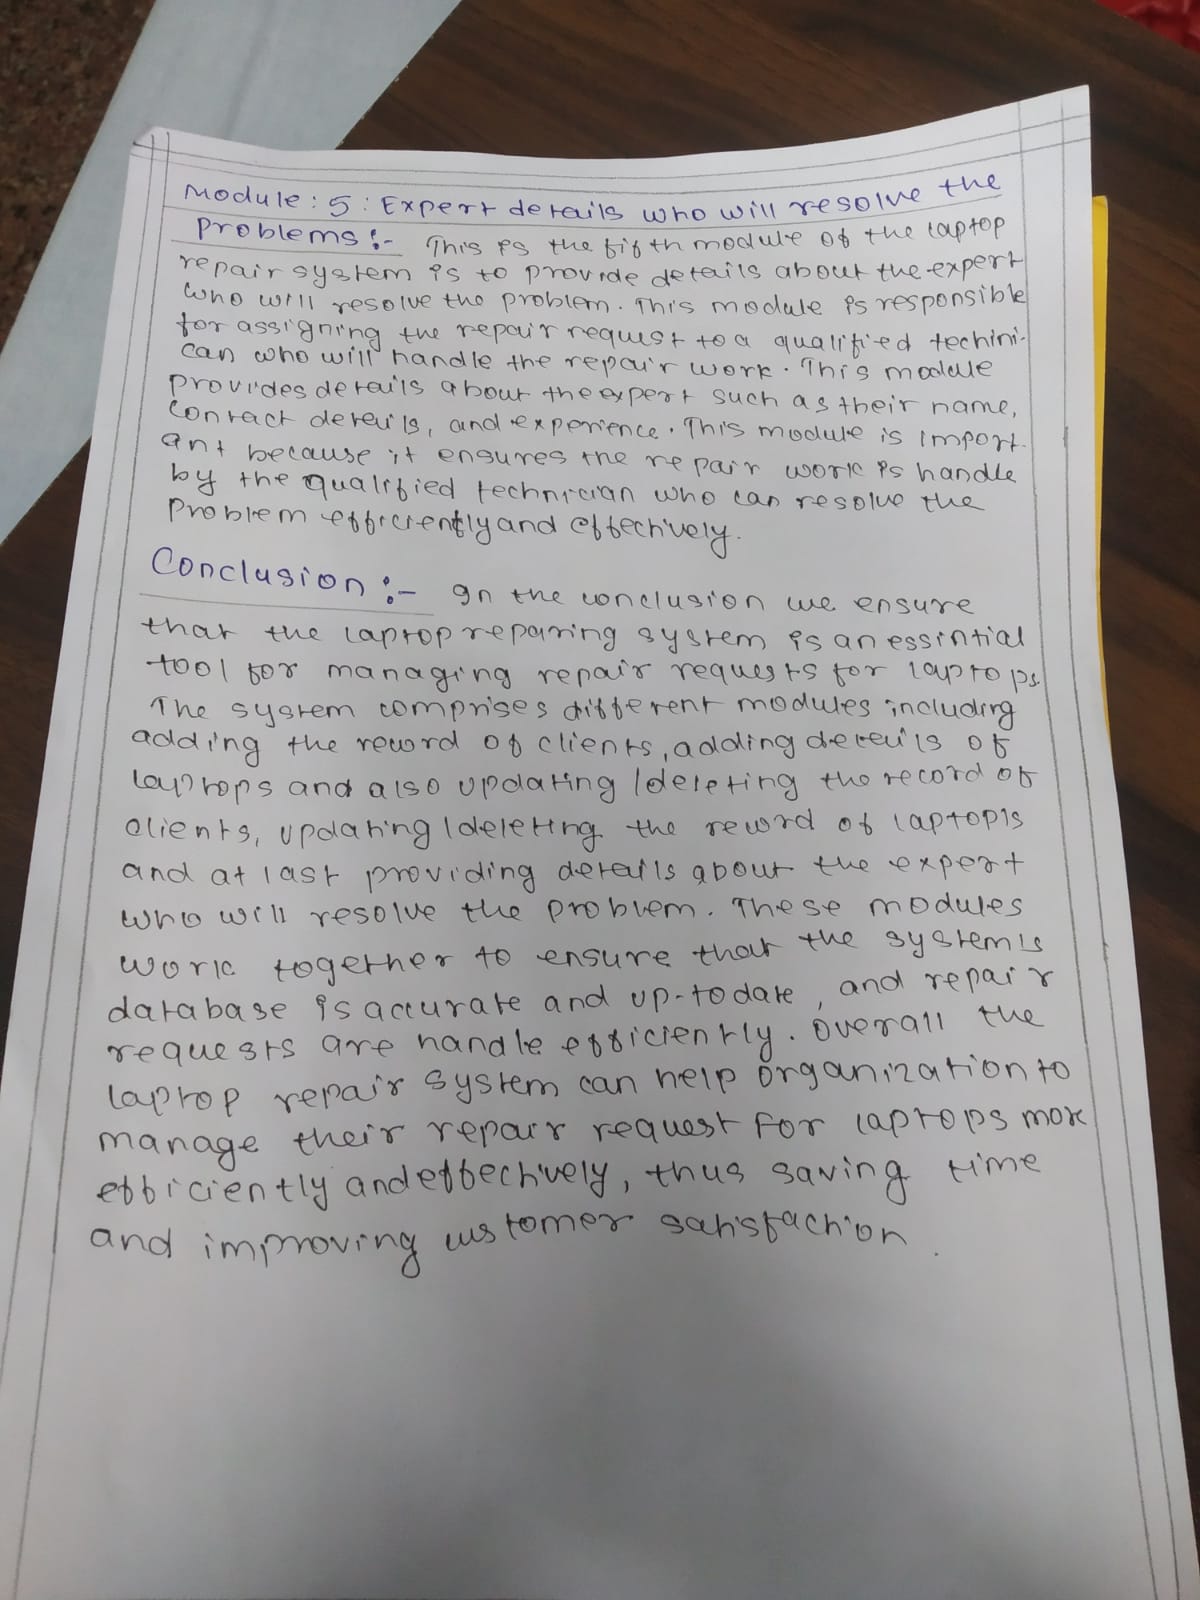 Module : 5 : Expert details who will resolve the
Problems :- This is the fifth module of the laptop
repair system is to provide details about the expert
who will resolve the problem. This module is responsible
for assigning the repair request to a qualified techini-
can who will handle the repair work. This module
provides details about the expert such as their name,
contact details, and experience. This module is import-
ant because it ensures the repair work is handle
by the qualified technician who can resolve the
problem efficiently and effectively.
Conclusion :- In the conclusion we ensure
that the laptop reparing system is an essintial
tool for managing repair requests for laptops.
The system comprises different modules including
adding the record of clients, adding details of
laptops and also updating/deleting the record of
clients, updating/deleting the record of laptop's
and at last providing details about the expert
who will resolve the problem. These modules
work together to ensure that the system's
database is accurate and up-to date, and repair
requests are handle efficiently. Overall the
laptop repair system can help organization to
manage their repair request for laptops more
efficiently and effectively, thus saving time
and improving customer satisfaction.